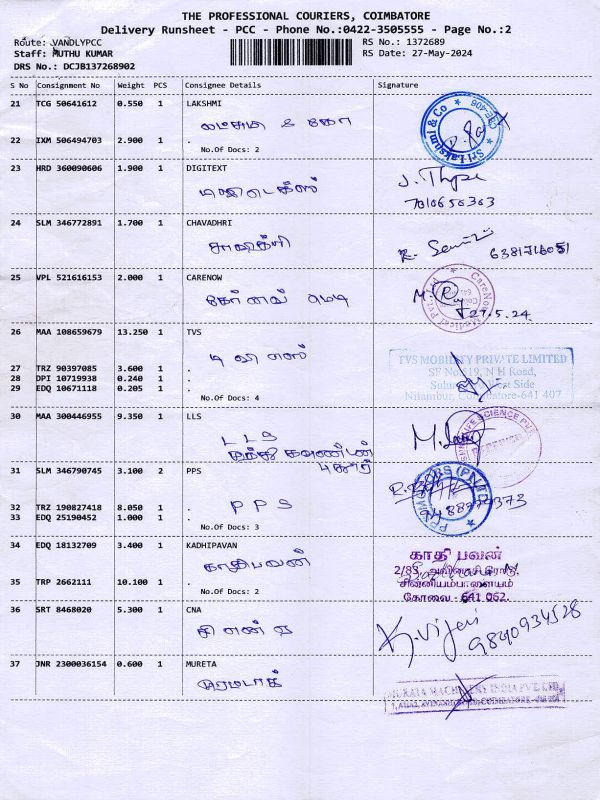 THE PROFESSIONAL COURIERS, COIMBATORE
Delivery Runsheet - PCC - Phone No.:0422-3505555 - Page No.:2
Route: VANDLYPCC RS No.: 1372689
Staff: MUTHU KUMAR RS Date: 27-May-2024
DRS No.: DCJB137268902
S No Consignment No Weight PCS Consignee Details Signature
21 TCG 50641612 0.550 1 LAKSHMI
Sri Lakshmi & Co
22 IXM 506494703 2.900 1 .
No.Of Docs: 2
23 HRD 360090606 1.900 1 DIGITEXT
டிஜிடெக்ஸ்
7010650303
24 SLM 346772891 1.700 1 CHAVADHRI
25 VPL 521616153 2.000 1 CARENOW
27.5.24
26 MAA 108659679 13.250 1 TVS
டி வி எஸ்
TVS MOBILITY PRIVATE LIMITED
27 TRZ 90397085 3.600 1 .
28 DPI 10719938 0.240 1 .
29 EDQ 10671118 0.205 1 .
Nilambur, Coimbatore-641 407
No.Of Docs: 4
30 MAA 300446955 9.350 1 LLS
LLS
31 SLM 346790745 3.100 2 PPS
32 TRZ 190827418 8.050 1 .
PPS
33 EDQ 25190452 1.000 1 .
No.Of Docs: 3
34 EDQ 18132709 3.400 1 KADHIPAVAN
காதிபவன்
காதி பவன்
சின்னியம்பாளையம்
கோவை - 641 062.
35 TRP 2662111 10.100 1 .
No.Of Docs: 2
36 SRT 8468020 5.300 1 CNA
சி என் ஏ
K. Vijay
9840934528
37 JNR 2300036154 0.600 1 MURETA
MURATA MACHINERY INDIA PVT. LTD.